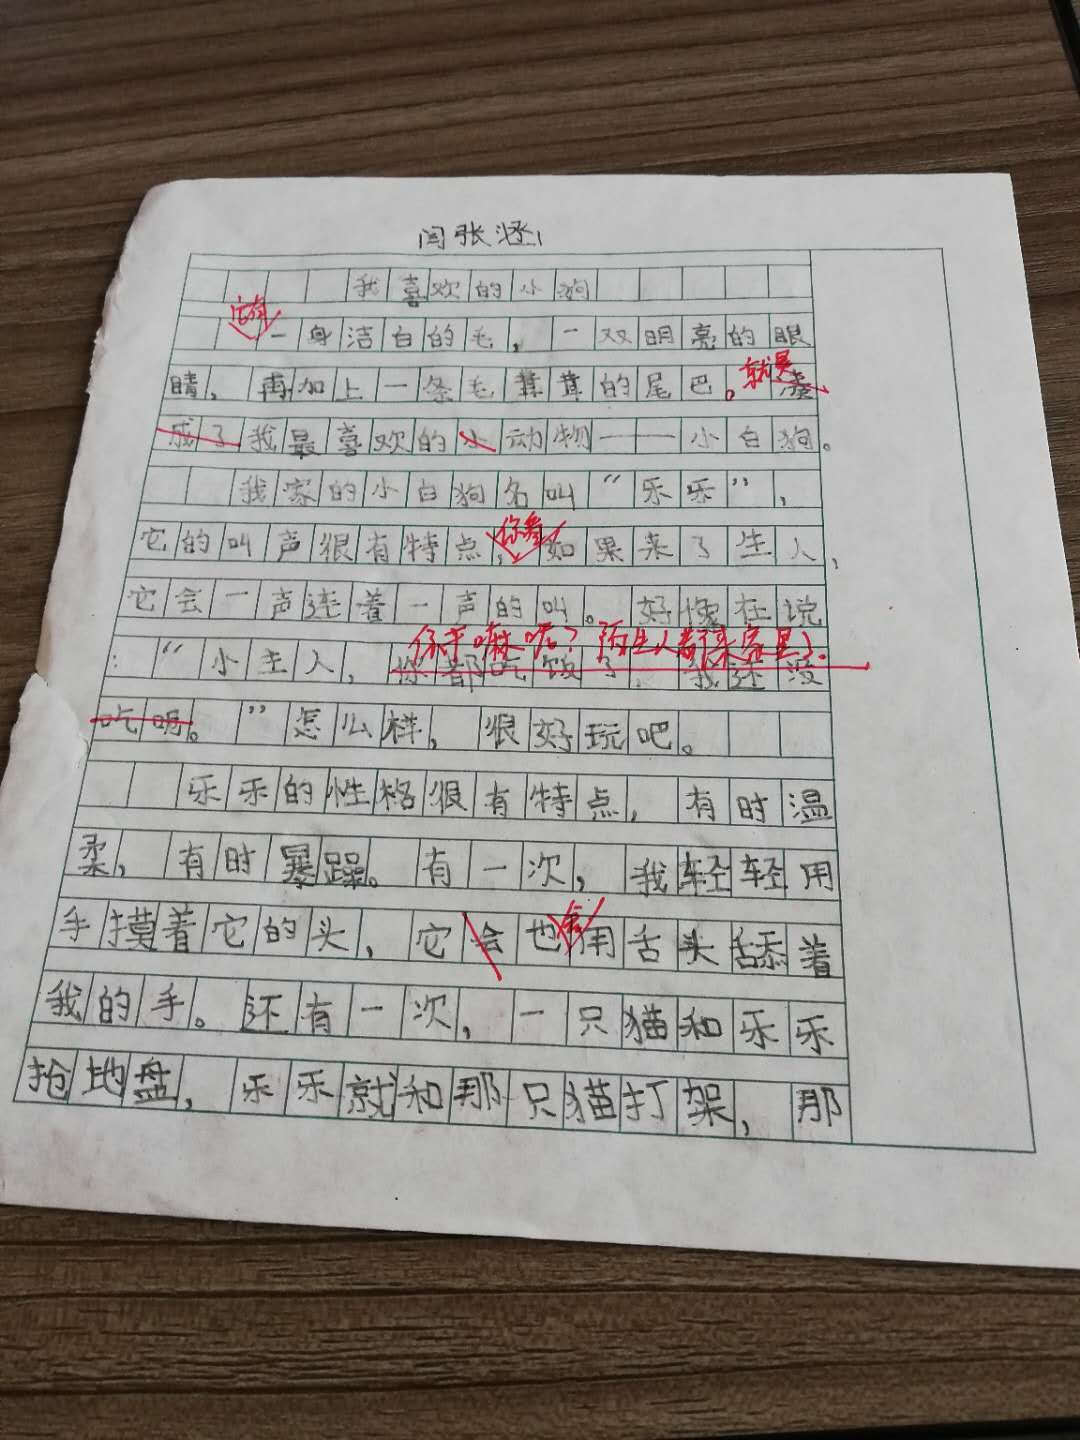 闫张
我喜欢的小狗
它有
一身洁白的毛，一双明亮的眼
睛，再加上一条毛茸茸的尾巴。就是凑
成了我最喜欢的小动物——小白狗。
我家的小白狗名叫“乐乐”，
它的叫声很有特点，你看如果来了生人，
它会一声连着一声的叫。好像在说
你干嘛呢？陌生人都来家里了.
：“小主人，你都吃饭了，我还没
吃呢。”怎么样，很好玩吧。
乐乐的性格很有特点，有时温
柔，有时暴躁。有一次，我轻轻用
手摸着它的头，它会也会用舌头舔着
我的手。还有一次，一只猫和乐乐
抢地盘，乐乐就和那只猫打架，那